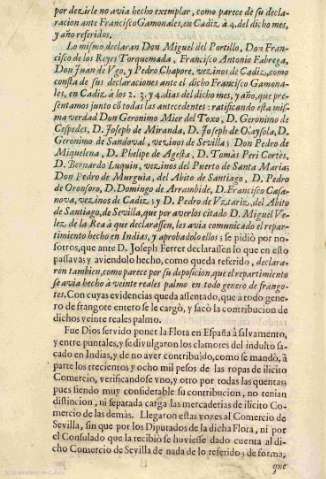 por dezirle no avia hecho exemplar, como parece de su decla-
racion ante Francisco Gamonales, en Cadiz à 4. del dicho mes,
y año referidos.
Lo mismo declaran Don Miguel del Portillo, Don Fran-
cisco de los Reyes Torquemada, Francisco Antonio Fabrega,
Don Juan de Vgo, y Pedro Chapore, vezinos de Cadiz, como
consta de sus declaraciones ante el dicho Francisco Gamona-
les, en Cadiz à los 2. 3. y 4. dias del dicho mes, y año, que pre-
sentamos junto cõ todas las antecedentes: ratificando esta mis-
ma verdad Don Geronimo Mier del Toxo, D. Geronimo de
Cespedes, D. Joseph de Miranda, D. Joseph de Olaysola, D.
Geronimo de Sandoval, vezinos de Sevilla; Don Pedro de
Miquelena, D. Phelipe de Agesta, D. Tomàs Peri Cortès,
D. Bernardo Luquin, vezinos del Puerto de Santa Maria;
Don Pedro de Murguia, del Abito de Santiago, D. Pedro
de Oronsoro, D. Domingo de Arrambide, D. Francisco Casa-
nova, vezinos de Cadiz; y D. Pedro de Viztariz, del Abito
de Santiago, de Sevilla, que por averlos citado D. Miguel Ve-
lez de la Rea à que declarassen, les avia comunicado el repar-
timiento hecho en Indias, y aprobadolo ellos se pidiò por no-
sotros, que ante D. Joseph Ferret declarassen lo que en esto
passava; y aviendolo hecho, como queda referido, declara-
ron tambien, como parece por su deposicion, que el repartimiento
se avia hecho à veinte reales palmo en todo genero de frango-
tes. Con cuyas evidencias queda assentado, que a todo gene-
ro de frangote entero se le cargò, y sacò la contribucion de
dichos veinte reales palmo.
Fue Dios servido poner la Flota en España à salvamento,
y entre puntales, y se divulgaron los clamores del indulto sa-
cado en Indias, y de no aver contribuido, como se mandò, à
parte los trecientos y ocho mil pesos de las ropas de ilicito
Comercio, verificandose vno, y otro por todas las quentas;
pues siendo muy considerable su contribucion, no tenian
distincion, ni separada carga las mercaderias de ilicito Co-
mercio de las demàs. Llegaron estas vozes al Comercio de
Sevilla, sin que por los Diputados de la dicha Flota, ni por
el Consulado que la recibiò se huviesse dado cuenta al di-
cho Comercio de Sevilla de nada de lo referido; de forma,
que